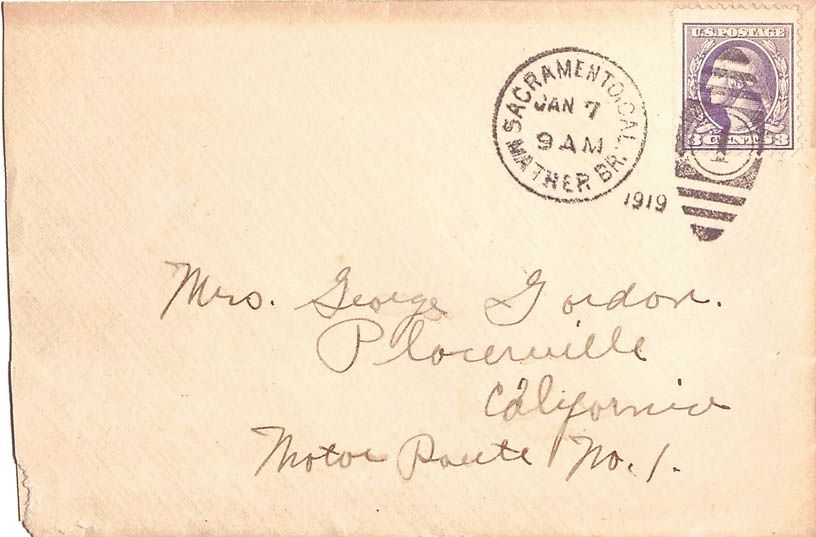 U.S. POSTAGE
3 CENTS 3
SACRAMENTO, CAL.
JAN 7
9 AM
MATHER BR.
1919
1
Mrs. George Gordon.
Placerville
California
Motor Route No. 1.